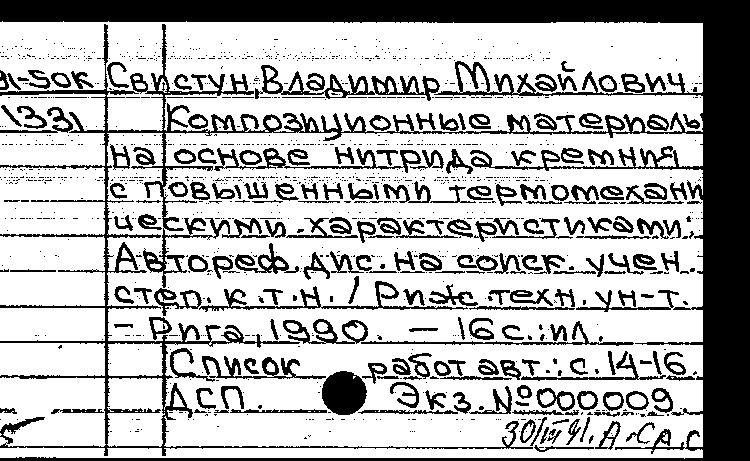 91-50к Свистун, Владимир Михайлович.
1331 Композиционные материалы
на основе нитрида кремния
с повышенными термомехани
ческими характеристиками:
Автореф. дис. на соиск. учен.
степ. к.т.н. / Риж. техн. ун-т.
- Рига, 1990. — 16 с.: ил.
Список работ авт.: с. 14-16.
ДСП. Экз. № 000009.
30/III 91.